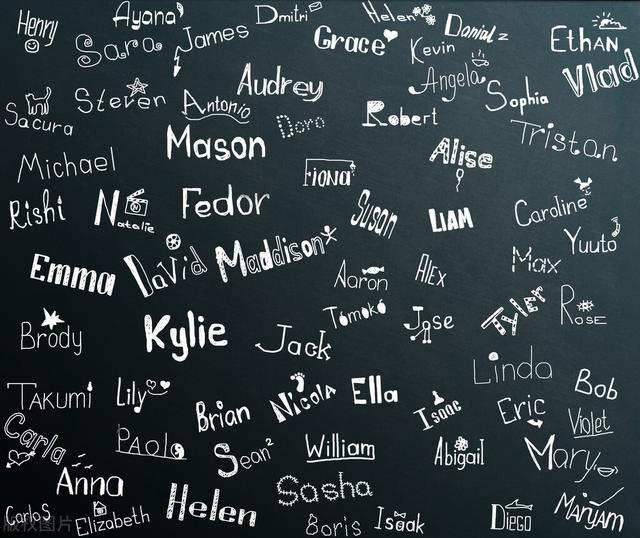 Henry
Ayana
Dmitri
Helen
Daniel
Ethan
Sara
James
Grace
Kevin
Vlad
Audrey
Angela
Sophia
Sacura
Steven
Antonio
Doro
Robert
Tristan
Michael
Mason
Fiona
Alise
Rishi
Natalie
Fedor
Susan
Liam
Caroline
Yuuto
Emma
David
Maddison
Aaron
Alex
Max
Brody
Kylie
Jack
Tomoko
Jose
Tyler
Rose
Takumi
Lily
Nicola
Ella
Linda
Bob
Carla
Paolo
Brian
Isaac
Eric
Violet
Sean
William
Abigail
Mary
Anna
Sasha
Carlos
Elizabeth
Helen
Boris
Isaak
Diego
Mariyam
版权图片